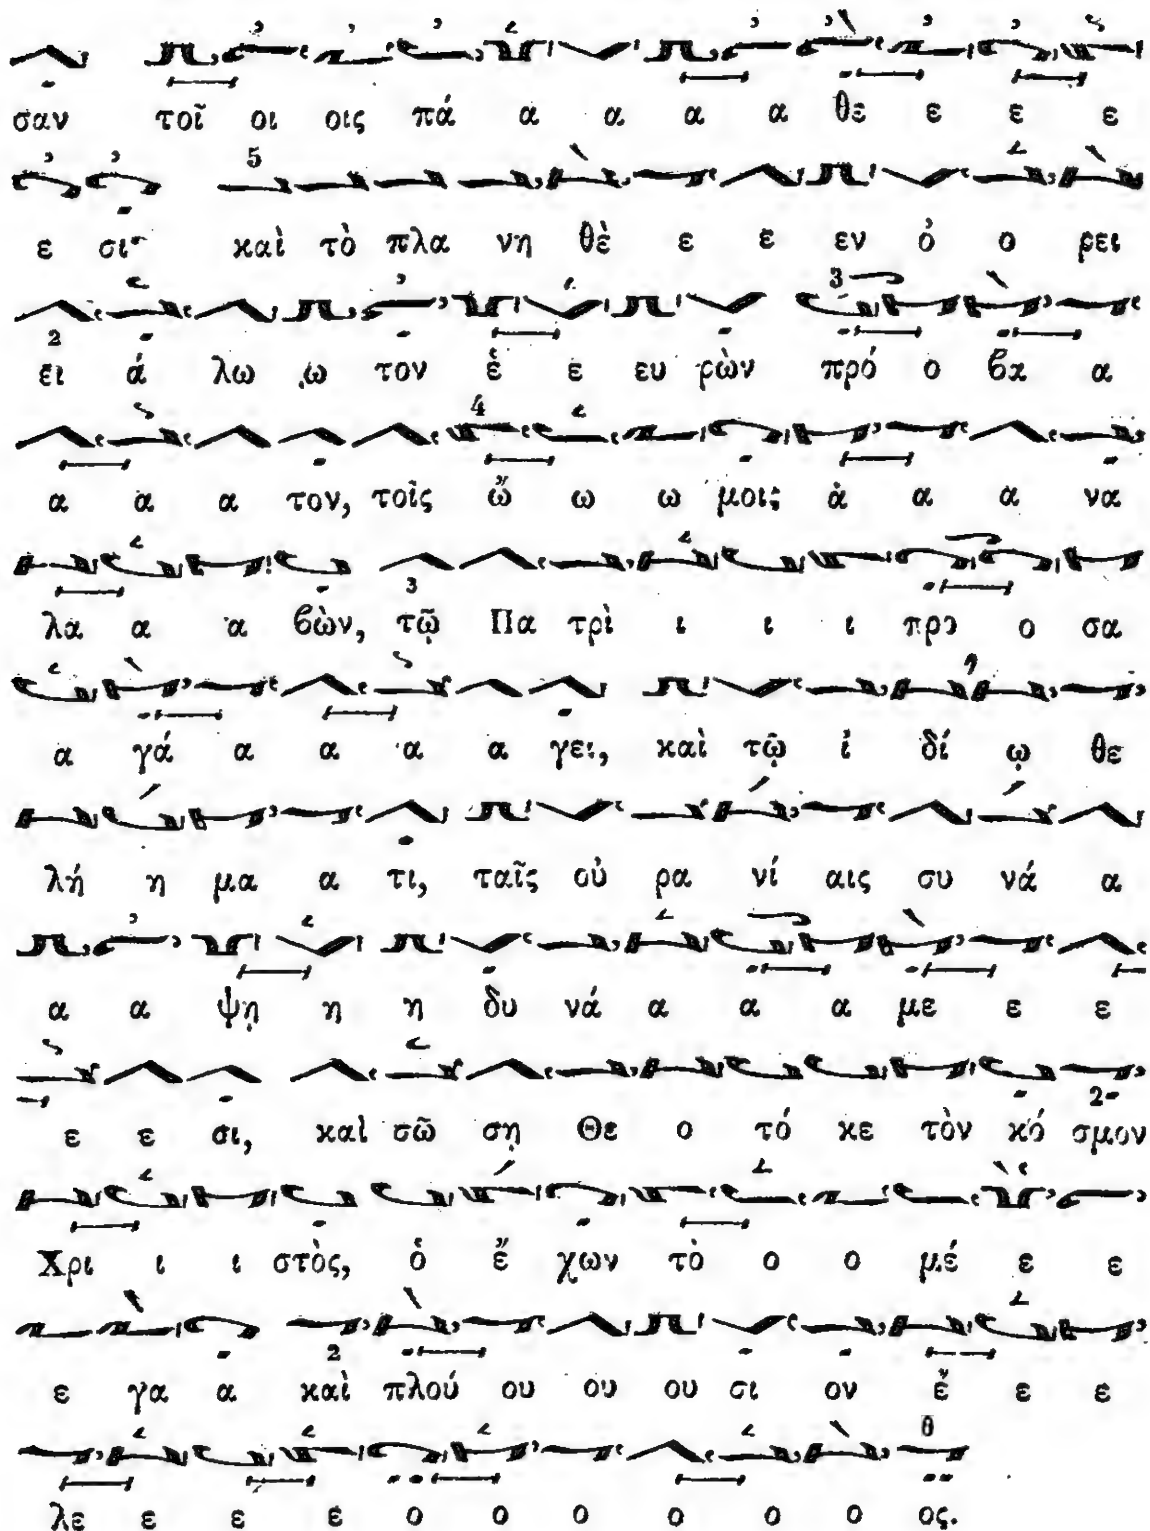 σαν τοῖ οι οις πά α α α α θε ε ε ε
5
ε σι καὶ τὸ πλα νη θὲ ε ε εν ὀ ο ρει
3
2
ει ά λω ω τον ἑ ε ευ ρὼν πρό ο βα α
4
α α α τον, τοῖς ὤ ω ω μοις ἀ α α να
3
λα α α βὼν, τῷ Πα τρὶ ι ι ι προ ο σα
α γά α α α α γει, καὶ τῷ ἰ δί ῳ θε
λή η μα α τι, ταῖς οὐ ρα νί αις συ νά α
α α ψῃ η η δυ νά α α α με ε ε
2
ε ε σι, καὶ σῶ σῃ Θε ο τό κε τὸν κό σμον
Χρι ι ι στὸς, ὁ ἔ χων τὸ ο ο μέ ε ε
2
ε γα α καὶ πλού ου ου ου σι ον ἔ ε ε
θ
λε ε ε ε ο ο ο ο ο ο ος.